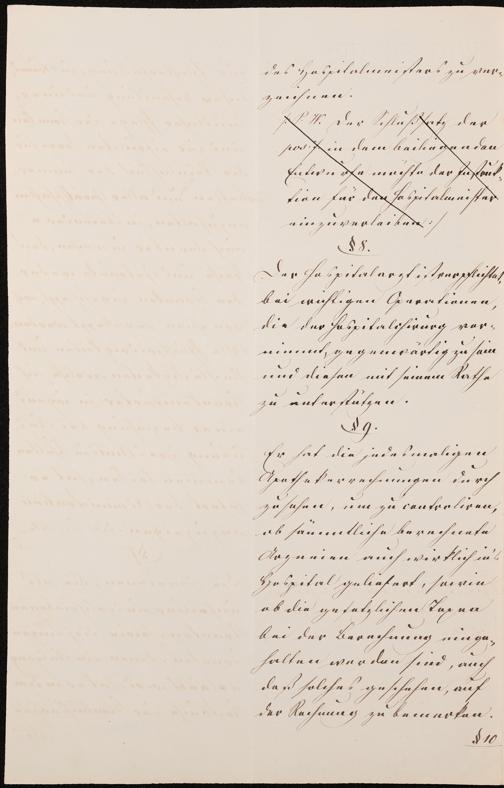 des Hospitalmeisters zu ver-
zeichnen.
/: N. Der Schlußsatz der
pos: in dem beiliegenden
Entwurfe möchte der Instruk-
tion für den Hospitalmeister
einzuverleiben :/
§ 8.
Der Hospitalarzt ist verpflichtet,
bei wichtigen Operationen,
die der Hospitalchirurg vor-
nimmt, gegenwärtig zu sein
und diesen mit seinem Rathe
zu unterstützen.
§ 9.
Er hat die jedesmaligen
Apothekerrechnungen durch
zusehen, um zu controliren,
ob sämmtliche berechnete
Arzneien auch wirklich in's
Hospital geliefert, sowie
ob die gesetzlichen Taxen
bei der Berechnung einge-
halten worden sind, auch
daß solches geschehen, auf
der Rechnung zu bemerken.
§ 10